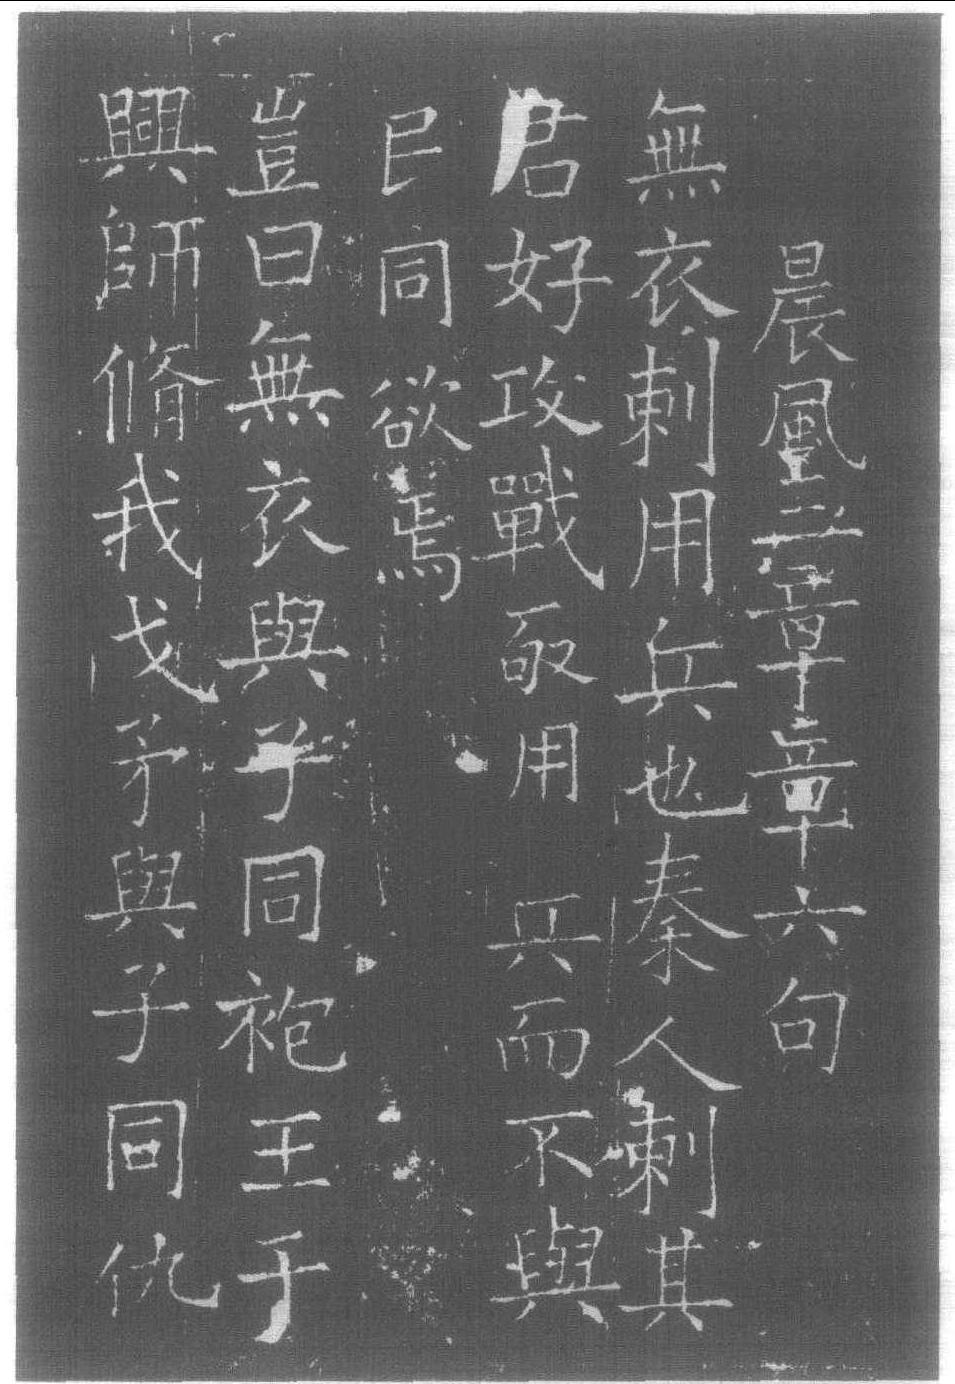 晨風三章章六句
無衣刺用兵也秦人刺其
君好攻戰亟用兵而不與
民同欲焉
豈曰無衣與子同袍王于
興師脩我戈矛與子同仇